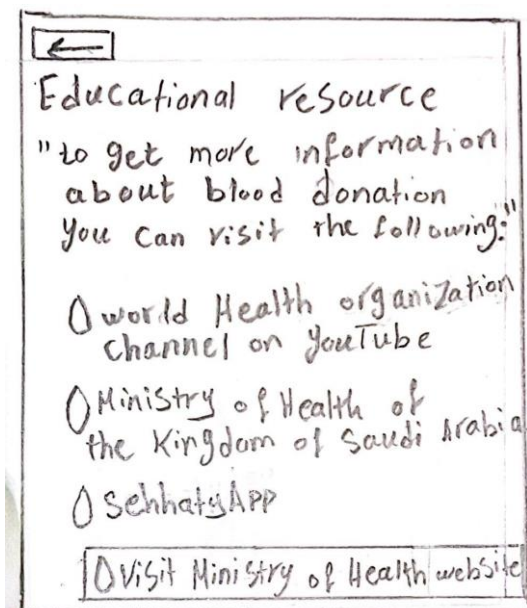 Educational resource
"to get more information
about blood donation
you can visit the following:"
world Health organization
channel on YouTube
Ministry of Health of
the Kingdom of Saudi Arabia
Sehhaty App
Visit Ministry of Health website